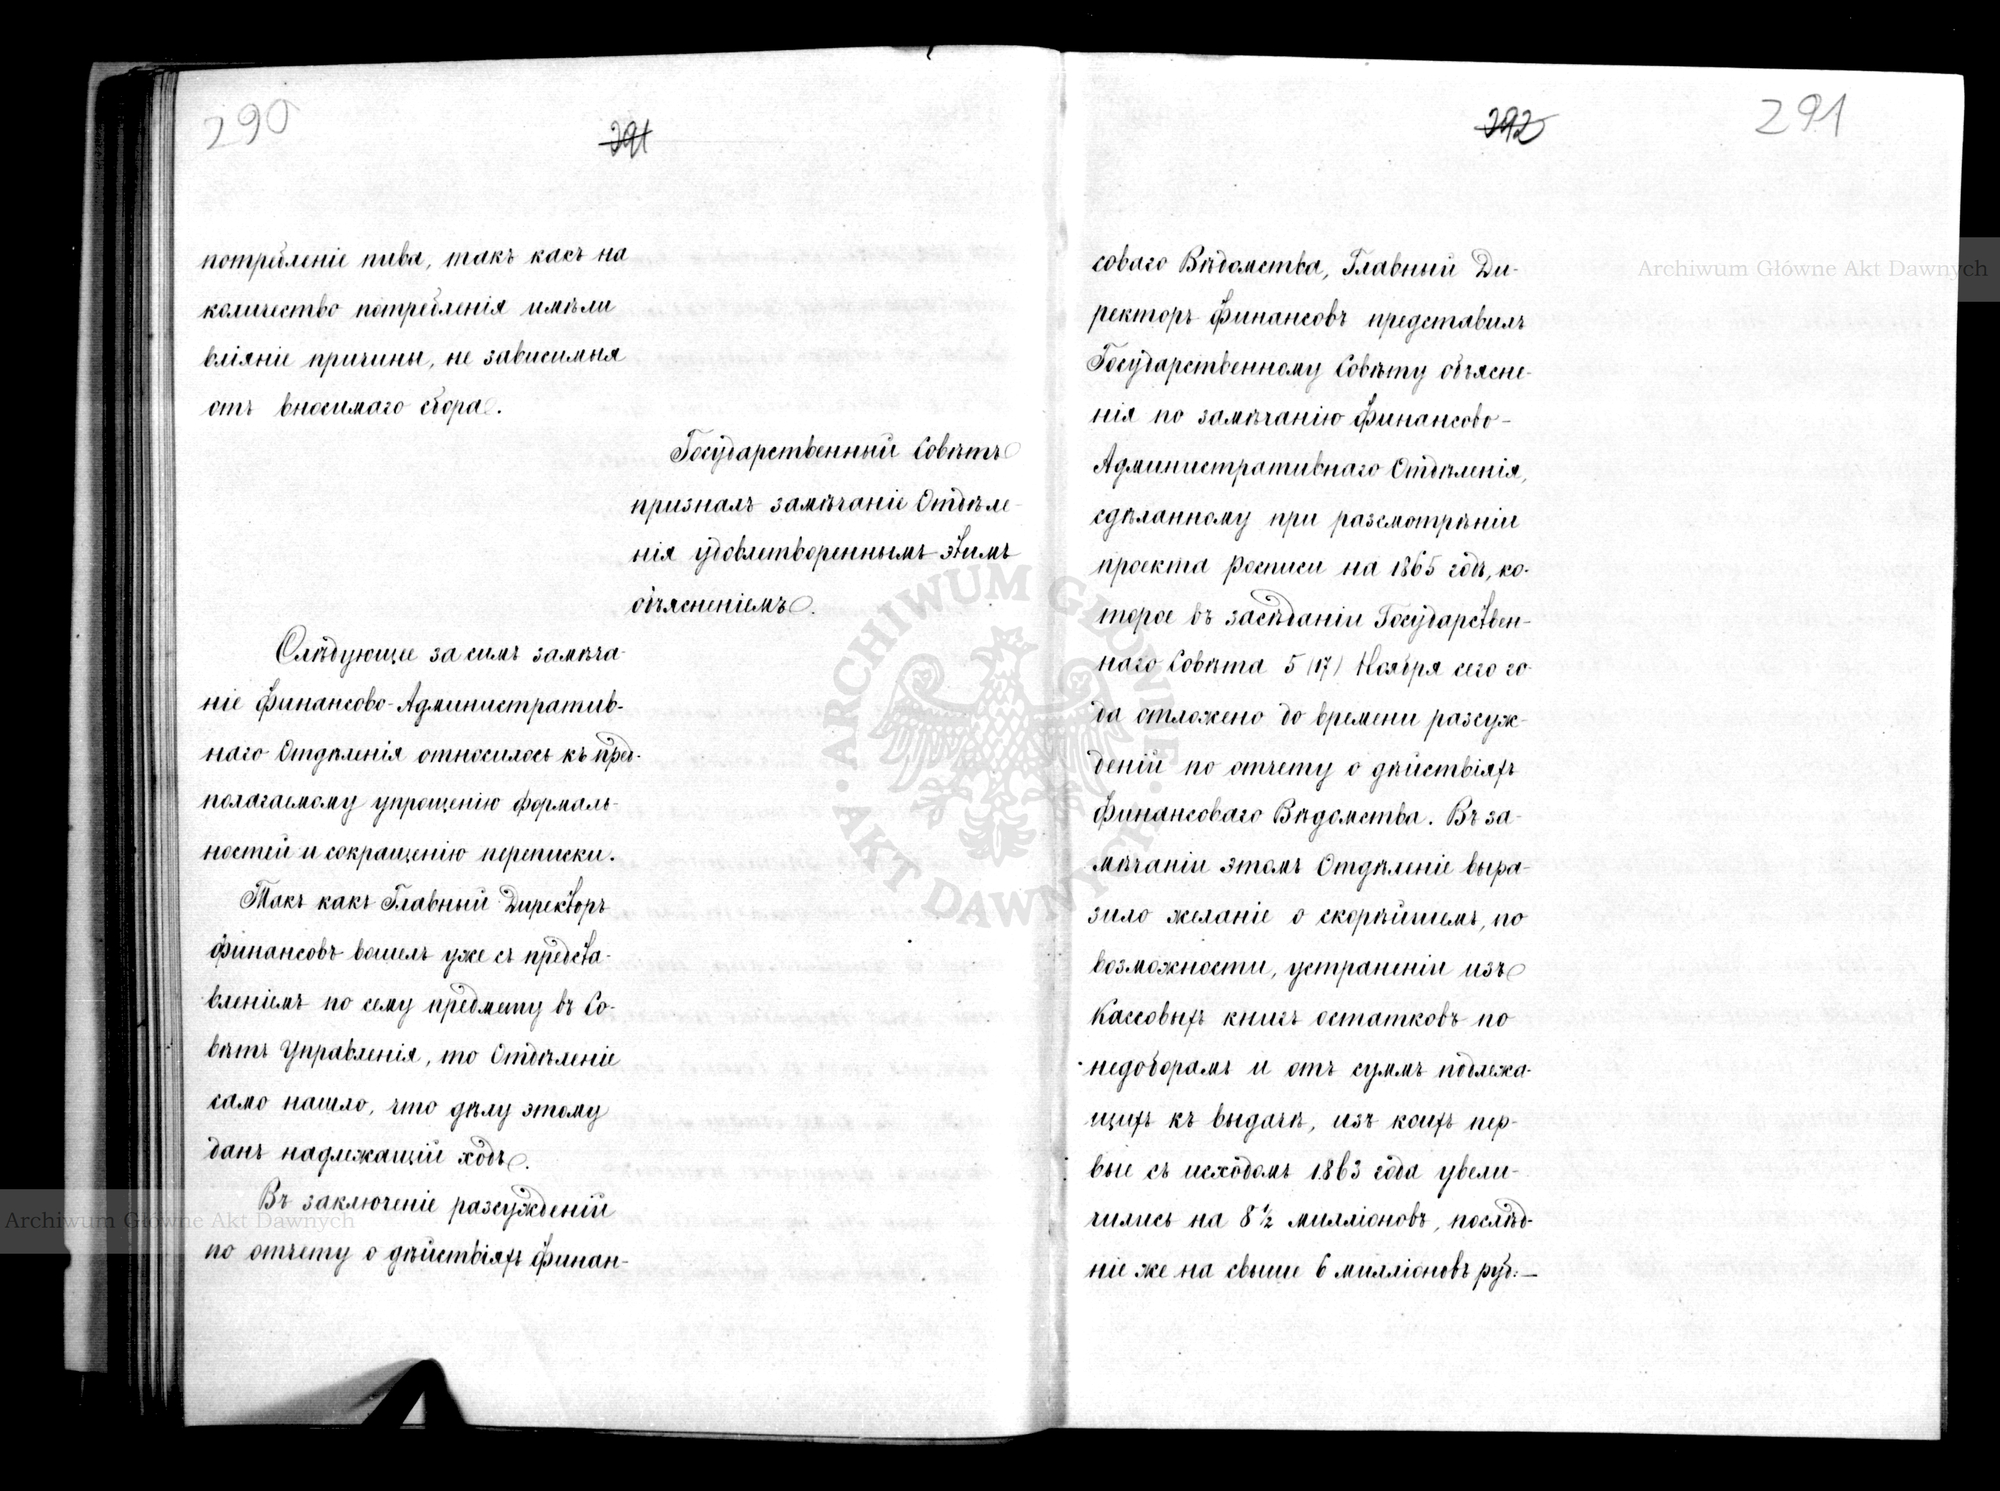 290
291
потребленіе пива, такъ какъ на
количество потребленія имѣли
вліяніе причины, не зависимыя
отъ вносимаго сбора.
Государственный Совѣтъ
призналъ замѣчаніе Отдѣле-
нія удовлетвореннымъ этимъ
объясненіемъ.
Слѣдующее за симъ замѣча-
ніе Финансово-Административ-
наго Отдѣленія относилось къ пред-
полагаемому упрощенію формаль-
ностей и сокращенію переписки.
Такъ какъ Главный Директоръ
Финансовъ вошелъ уже съ предста-
вленіемъ по сему предмету въ Со-
вѣтъ Управленія, то Отдѣленіе
само нашло, что дѣлу этому
данъ надлежащій ходъ.
Въ заключеніе разсужденій
по отчету о дѣйствіяхъ Финан-
292
291
соваго Вѣдомства, Главный Ди-
ректоръ Финансовъ представилъ
Государственному Совѣту объясне-
нія по замѣчанію Финансово-
Административнаго Отдѣленія,
сдѣланному при разсмотрѣніи
проекта Росписи на 1865 годъ, ко-
торое въ засѣданіи Государствен-
наго Совѣта 5 (17) Ноября сего го-
да отложено до времени разсуж-
деній по отчету о дѣйствіяхъ
Финансоваго Вѣдомства. Въ за-
мѣчаніи этомъ Отдѣленіе выра-
зило желаніе о скорѣйшемъ, по
возможности, устраненіи изъ
Кассовыхъ книгъ остатковъ по
недоборамъ и отъ суммъ подлежа-
щихъ къ выдачѣ, изъ коихъ пер-
вые съ исходомъ 1863 года увели-
чились на 8 ½ милліоновъ, послѣд-
ніе же на свыше 6 милліоновъ руб:—
Archiwum Główne Akt Dawnych
Archiwum Główne Akt Dawnych
ARCHIWUM GŁÓWNE · AKT DAWNYCH ·